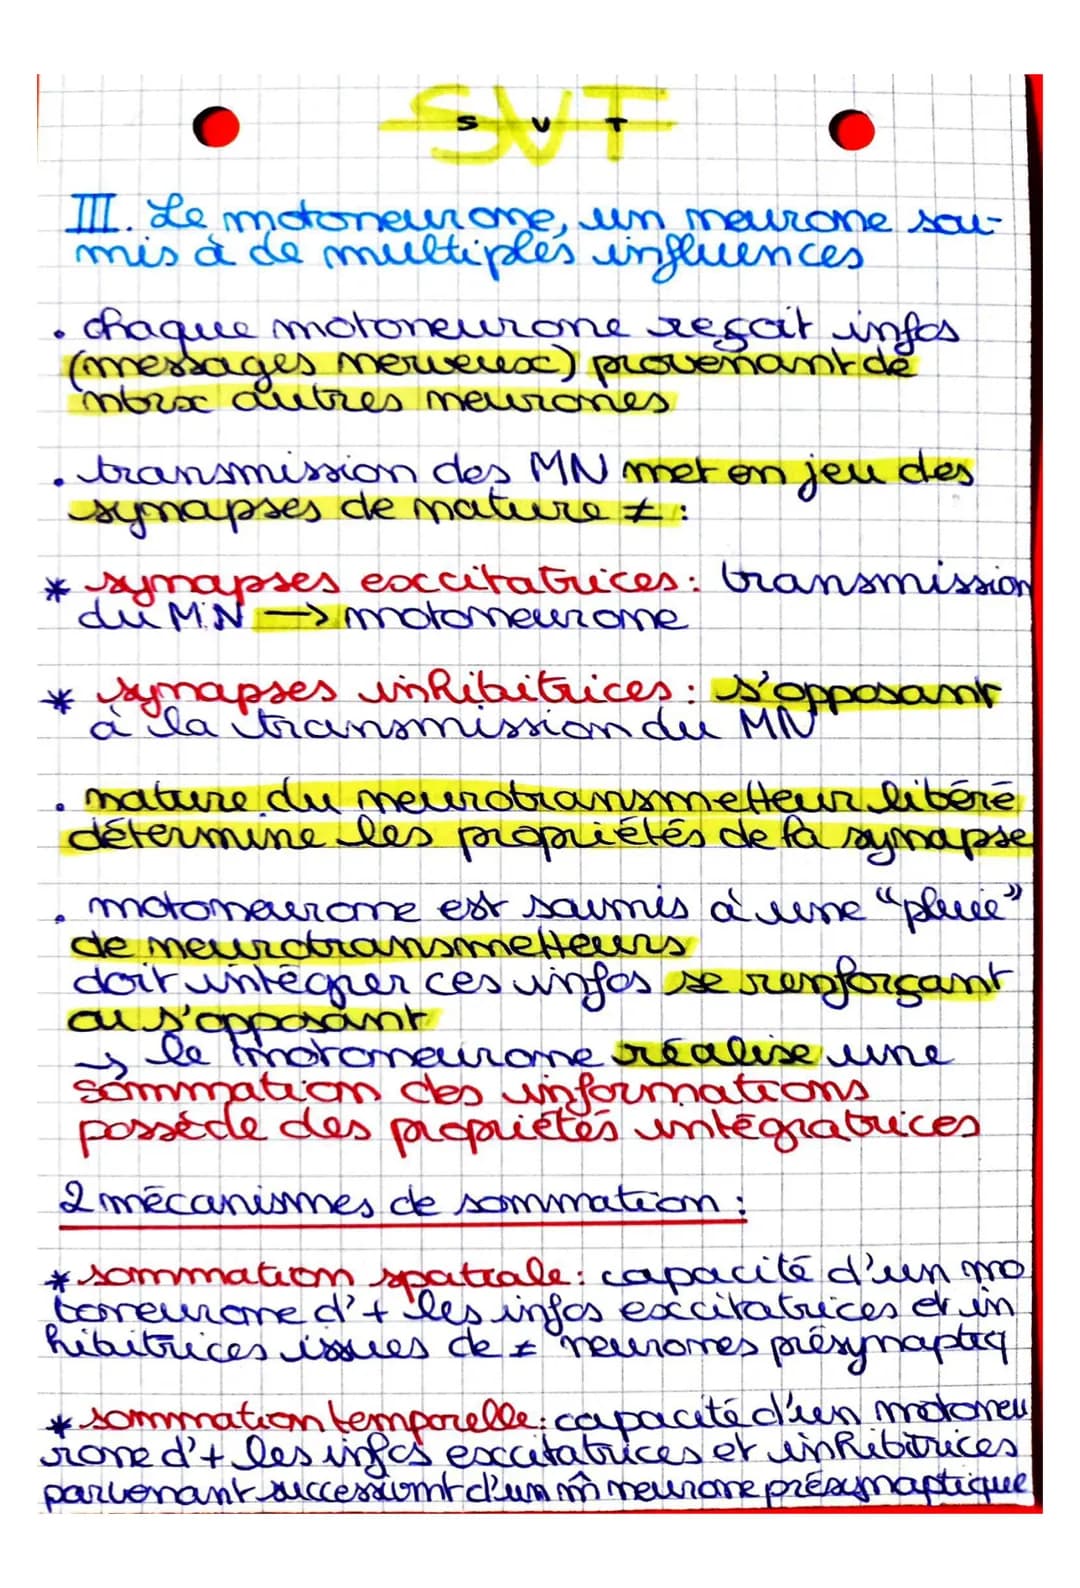 SVT
S V T
III. Le motoneurone, un neurone sou-
mis à de multiples influences
• chaque motoneurone reçoit infos
(messages nerveux) provenant de
nbrx autres neurones
• transmission des MN met en jeu des
synapses de nature ≠ :
* synapses excitatrices : transmission
du MN → motoneurone
* synapses inhibitrices : s'opposant
à la transmission du MN
• nature du neurotransmetteur libéré
détermine les propriétés de la synapse
• motoneurone est soumis à une "pluie"
de neurotransmetteurs
doit intégrer ces infos se renforçant
ou s'opposant
→ le motoneurone réalise une
sommation des informations
possède des propriétés intégratrices
2 mécanismes de sommation :
* sommation spatiale : capacité d'un mo
toneurone d'+ les infos excitatrices et in
hibitrices issues de ≠ neurones présynaptiq
* sommation temporelle : capacité d'un motoneu
rone d'+ les infos excitatrices et inhibitrices
parvenant successivmt d'un m̂ neurone présynaptique